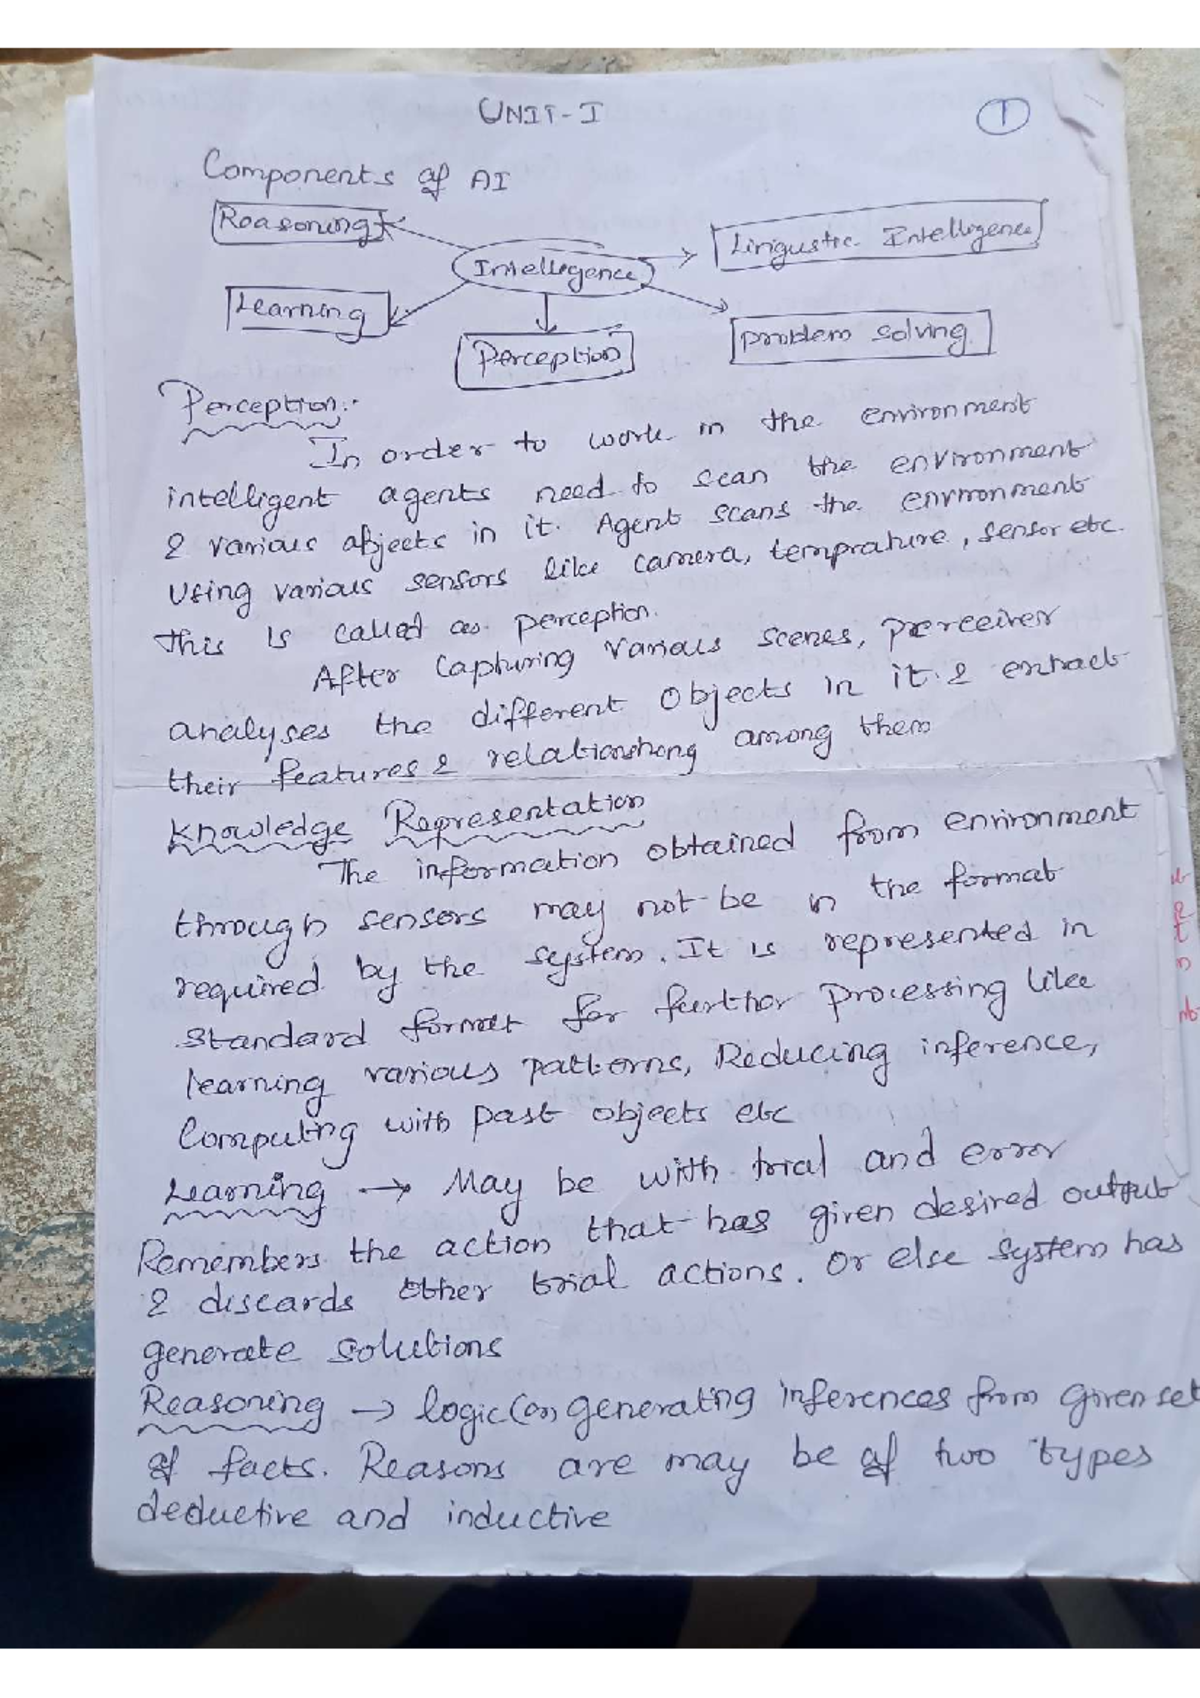 UNIT-I
1
Components of AI
Reasoning
Linigustic Intellegence
Intellegence
Learning
Perception
Problem solving
Perception:-
In order to work in the environment
intelligent agents need to scan the environment
& various objects in it. Agent scans the environment
Using various sensors like camera, temprature, sensor etc.
This is called as perception.
After capturing various scenes, perceiver
analyses the different objects in it & extract
their features & relationshing among them
Knowledge Representation
The information obtained from environment
through sensors may not be in the format
required by the system. It is represented in
standard format for further processing like
learning various patterns, Reducing inference,
Computing with past objects etc
Learning → May be with trial and error
Remembers the action that has given desired output
& discards other trial actions. Or else system has
generate solutions
Reasoning → logic (or) generating inferences from given set
of facts. Reasons are may be of two types
deductive and inductive